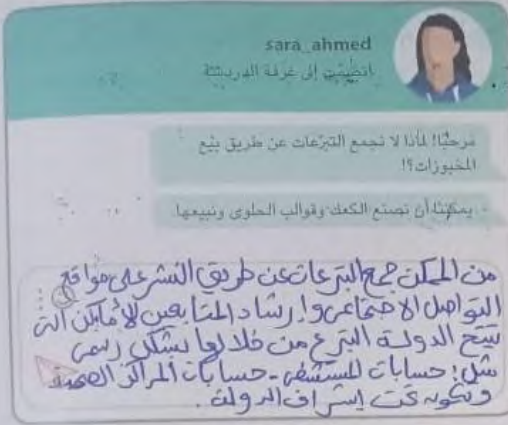 sara_ahmed
انضممت إلى غرفة الدردشة
مرحبًا! لماذا لا نجمع التبرّعات عن طريق بيْع
المخبوزات؟!
يمكننا أن نصنع الكعك وقوالب الحلوى ونبيعها.
من الممكن جمع التبرعات عن طريق النشر على مواقع
التواصل الاجتماعي وإرشاد المتابعين للأماكن التى
تتيح الدولة التبرع من خلالها بشكل رسمى
مثل: حسابات المستشفى - حسابات المراكز الصحية
وتكون تحت إشراف الدولة.